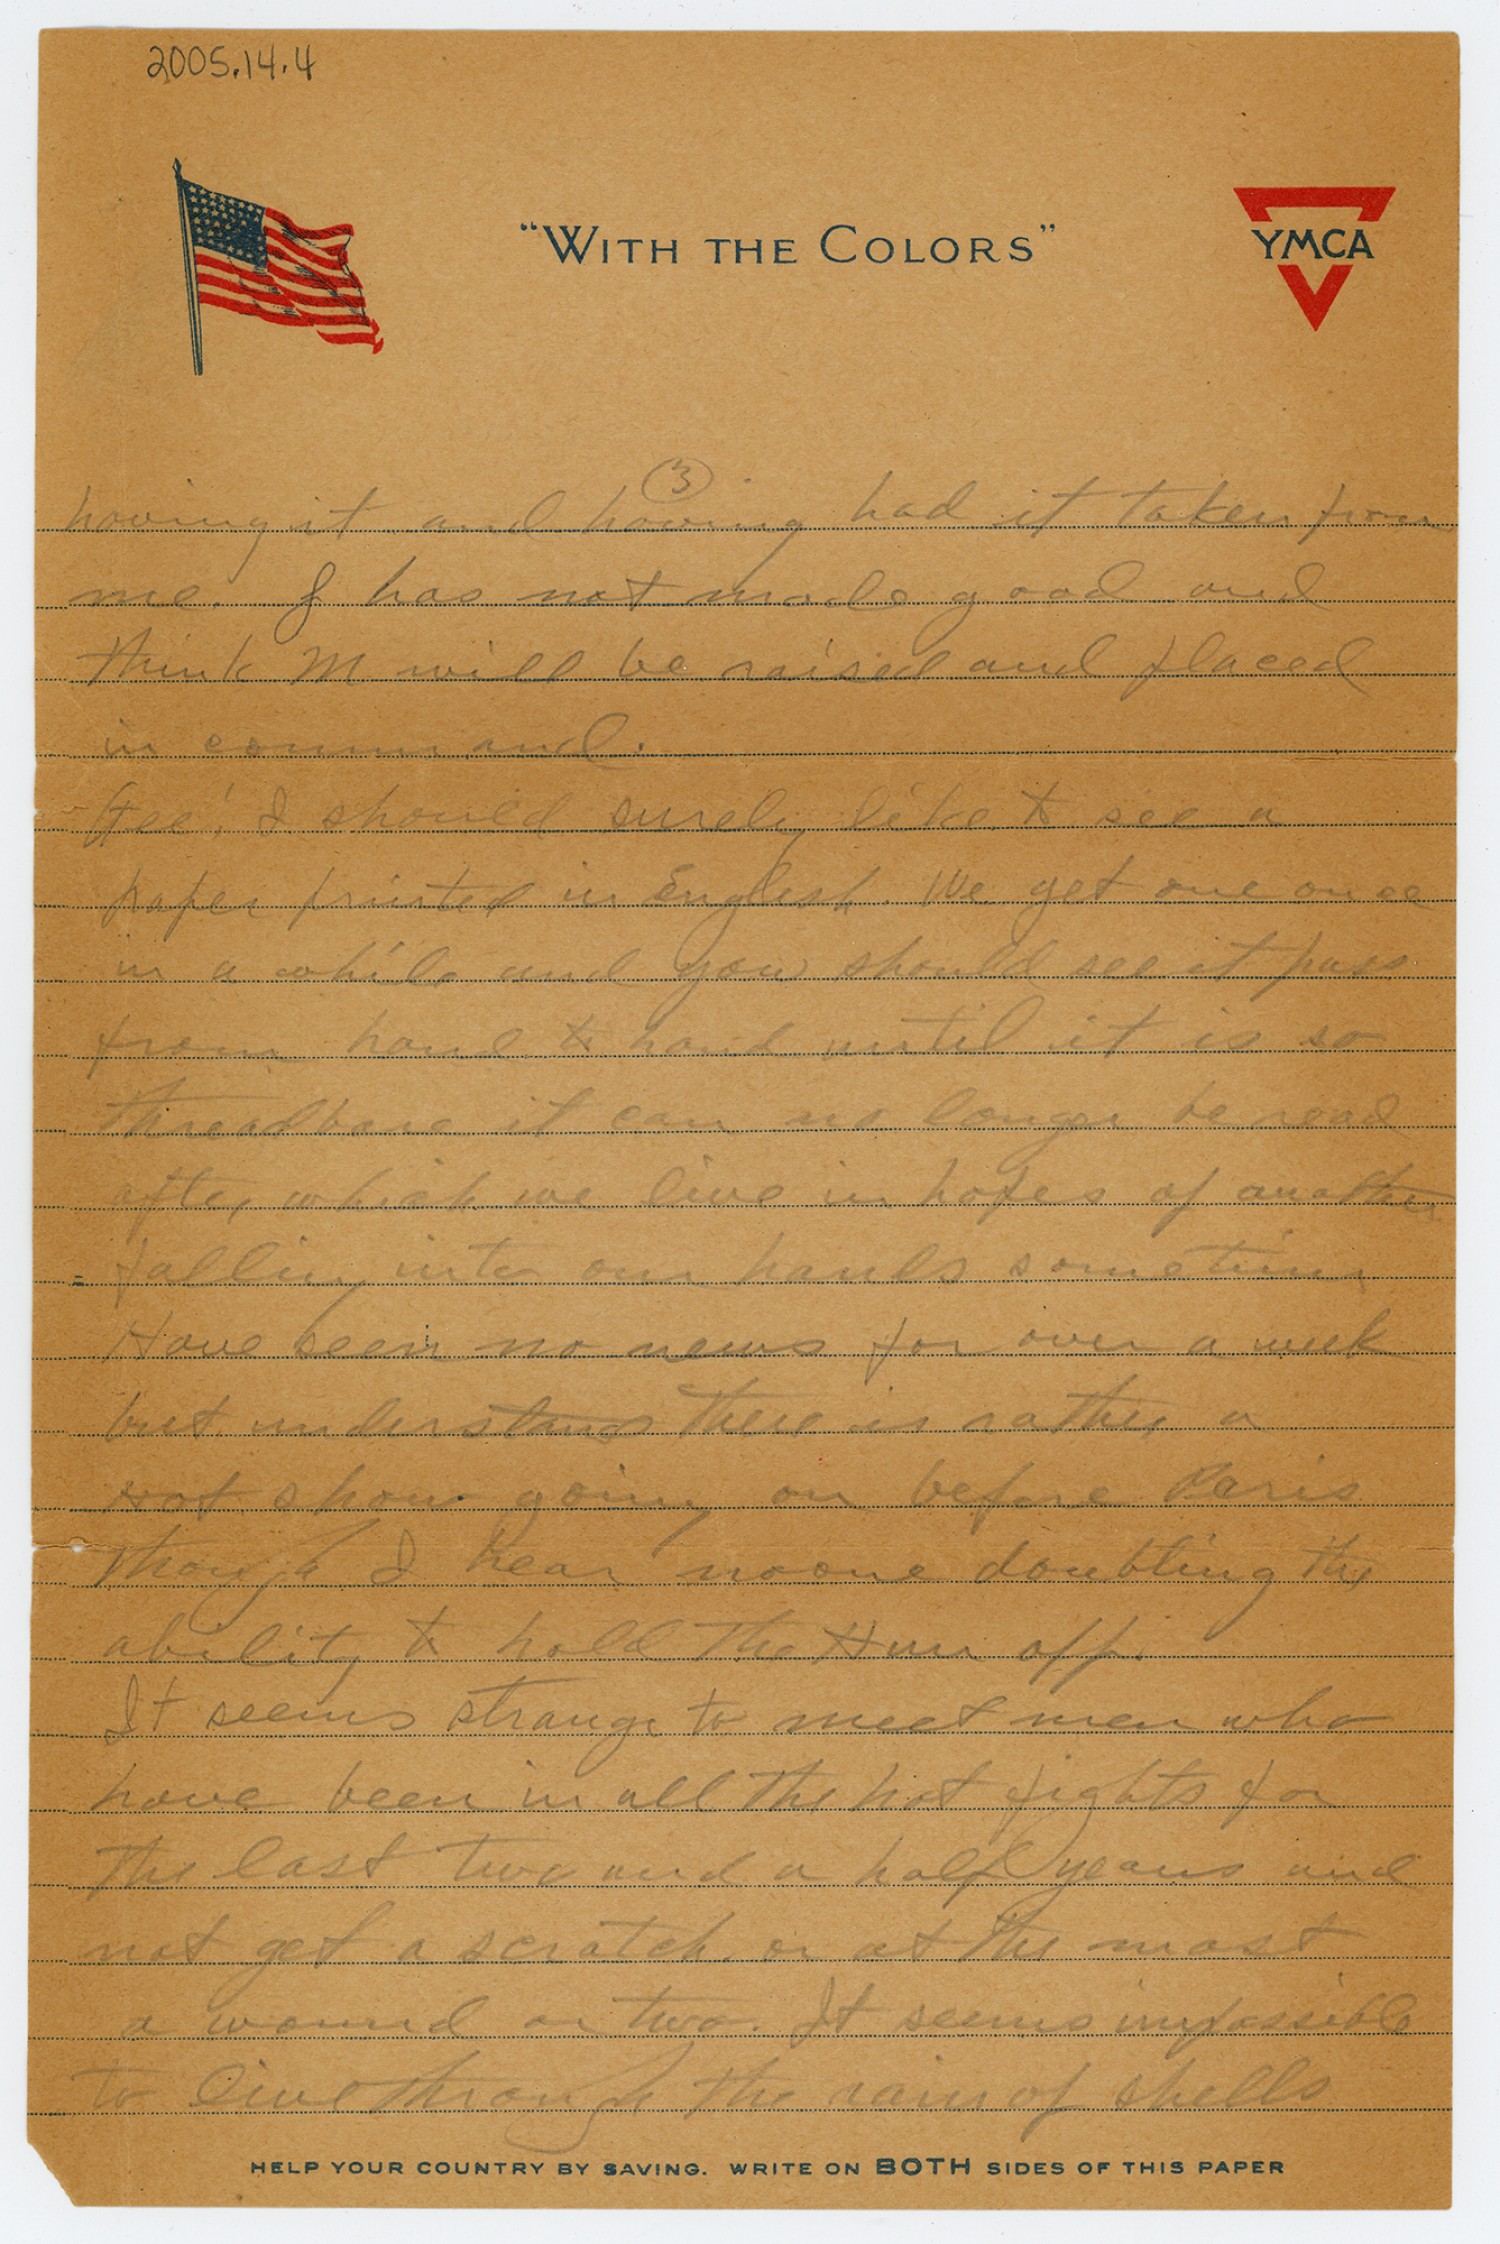 2005.14.4
"WITH THE COLORS"
YMCA
3
having it and having had it taken from
me. J has not made good and
think M will be raised and placed
in command.
Gee! I should surely like to see a
paper printed in English. We get one once
in a while and you should see it pass
from hand to hand until it is so
threadbare it can no longer be read
after which we live in hopes of another
falling into our hands sometime.
Have seen no news for over a week
but understand there is rather a
hot show going on before Paris
though I hear noone doubting the
ability to hold the Hun off.
It seems strange to meet men who
have been in all the hot fights for
the last two and a half years and
not get a scratch or at the most
a wound or two. It seems impossible
to live through the rain of shells
HELP YOUR COUNTRY BY SAVING. WRITE ON BOTH SIDES OF THIS PAPER